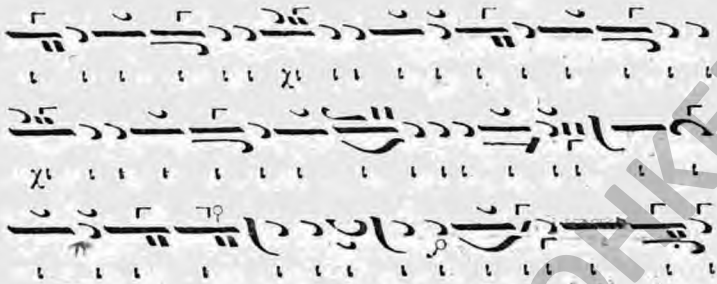 ι ι ι ι ι ι χι ι ι ι ι ι ι ι ι ι
χι ι ι ι ι ι ι ι ι ι ι ι ι ι ι ι
ι ι ι ι ι ι ι ι ι ι ι ι ι ι ι ι ι